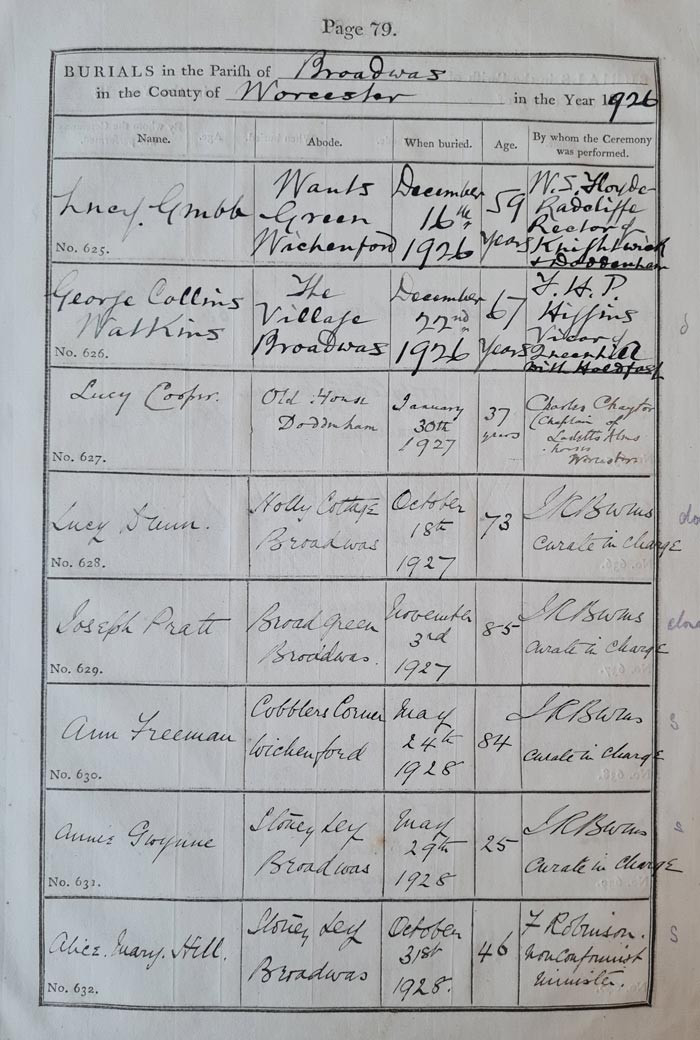 Page 79.
BURIALS in the Parish of Broadwas
in the County of Worcester in the Year 1926
Name. Abode. When buried. Age. By whom the Ceremony was performed.
Lucy. Grubb
No. 625.
Wants
Green
Wichenford
December
16th
1926
59
Years
W. S. Floyde
Radcliffe
Rector of
Knightwick
& Doddenham
George Collins
Watkins
No. 626.
The
Village
Broadwas
December
22nd
1926
67
Years
F. H. P.
Higgins
Vicar of
Queenhill
with Holdfast
Lucy Cooper.
No. 627.
Old House
Doddenham
January
30th
1927
37
years
Charles Chaytor
(Chaplain of
houses
Worcester
Lucy Dunn.
No. 628.
Holly Cottage
Broadwas
October
18th
1927
73
curate in charge
Joseph Pratt
No. 629.
Broad Green
Broadwas.
November
3rd
1927
85
curate in charge
Ann Freeman
No. 630.
Cobblers Corner
Wichenford
May
24th
1928
84
curate in charge
Annie Gwynne
No. 631.
Stoney Ley
Broadwas
May
29th
1928
25
curate in charge
Alice. Mary. Hill.
No. 632.
Stoney Ley
Broadwas
October
31st
1928.
46
F Robinson.
Nonconformist
Minister.